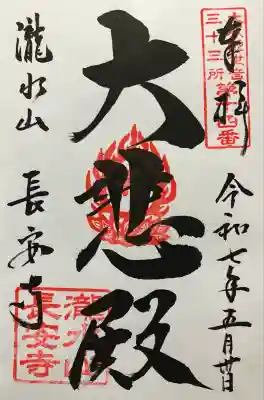 奉拝
三十三所
令和七年五月廿日
大悲殿
瀧水山 長安寺
瀧水山
長安寺